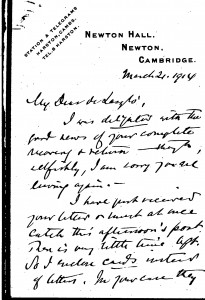 STATION & TELEGRAMS
HARSTON, CAMBS.
TEL. 8 HARSTON.
NEWTON HALL,
NEWTON,
CAMBRIDGE.
March 21. 1914
My Dear de Laszlo,
I was delighted with the
good news of your complete
recovery & return
selfishly, I am sorry you are
leaving again.—
I have just received
your letter & must at once
catch this afternoon's post.
There is very little time left.
So I enclose cards instead
of letters. In your case they